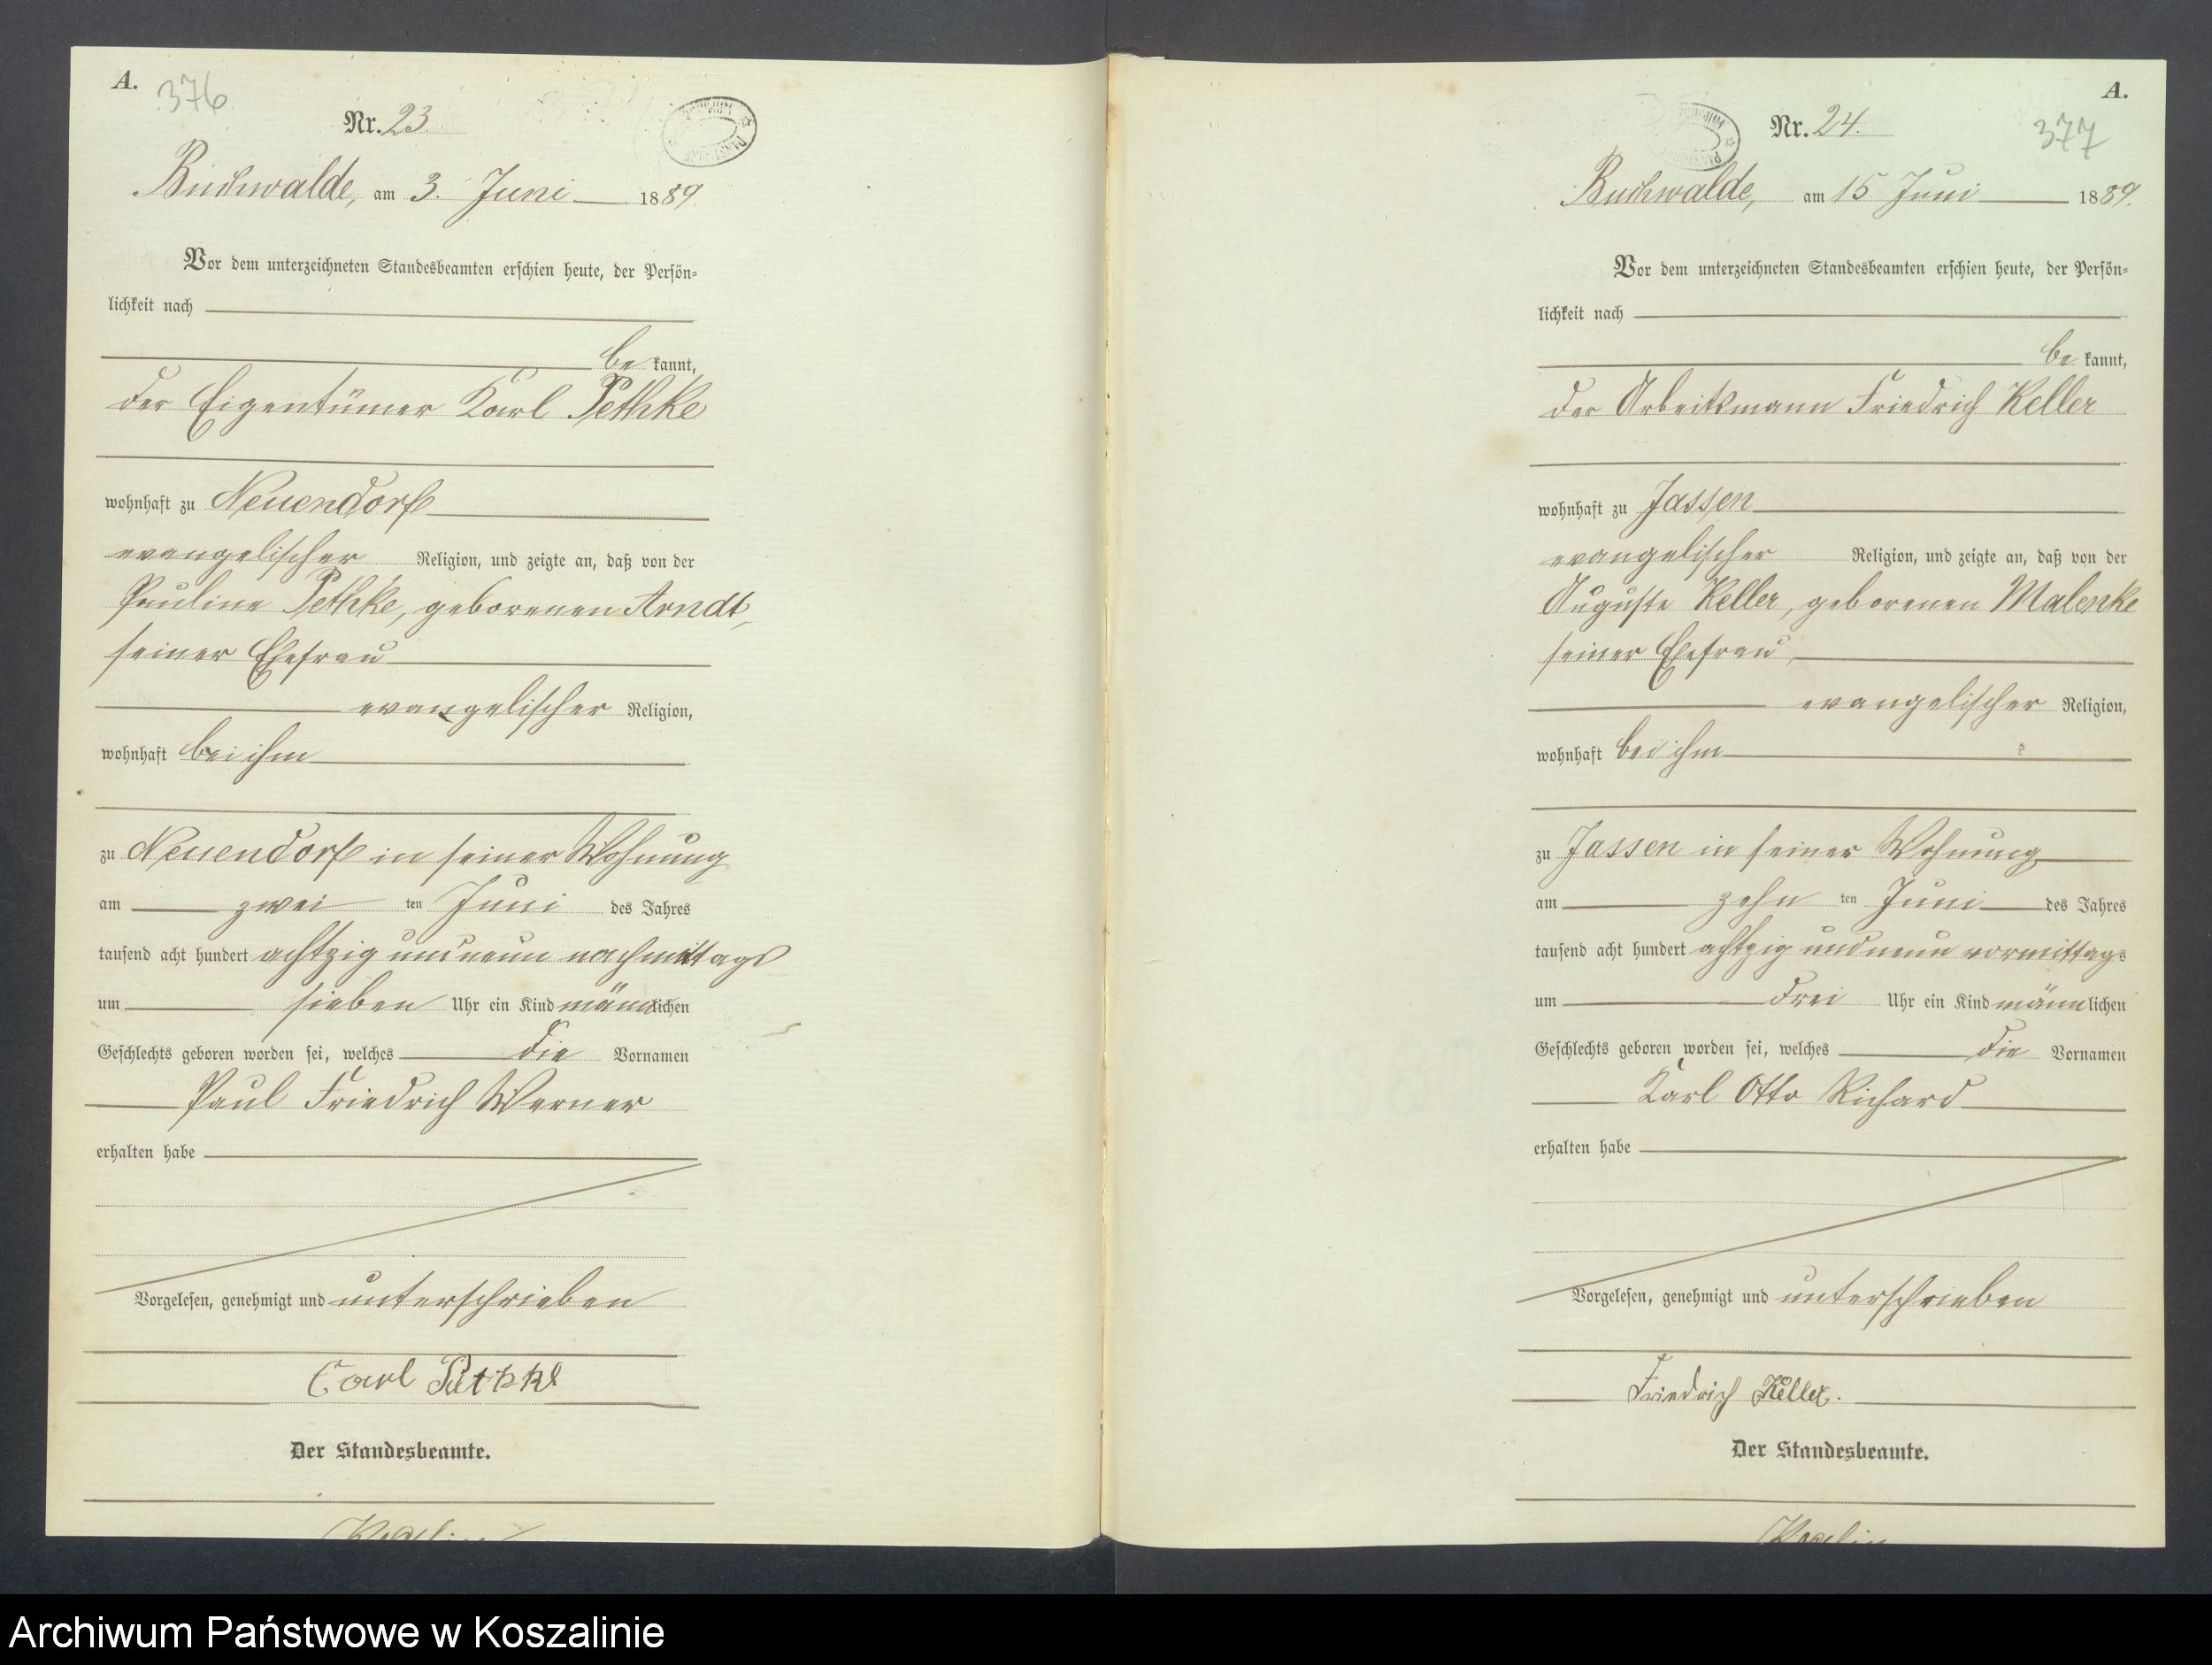 A.
376
Nr. 23.
Buchwalde, am 3. Juni 1889.
Vor dem unterzeichneten Standesbeamten erschien heute, der Persön-
lichkeit nach
be kannt,
der Eigentümer Karl Pethke
wohnhaft zu Neuendorf
evangelischer Religion, und zeigte an, daß von der
Pauline Pethke, geborenen Arndt,
seiner Ehefrau
evangelischer Religion,
wohnhaft bei ihm
zu Neuendorf in seiner Wohnung
am zwei ten Juni des Jahres
tausend acht hundert achtzig und neun nachmittags
um sieben Uhr ein Kind männlichen
Geschlechts geboren worden sei, welches die Vornamen
Paul Friedrich Werner
erhalten habe
Vorgelesen, genehmigt und unterschrieben
Carl
Der Standesbeamte.
A.
377
Nr. 24.
Buchwalde, am 15 Juni 1889.
Vor dem unterzeichneten Standesbeamten erschien heute, der Persön-
lichkeit nach
be kannt,
der Arbeitsmann Friedrich Keller
wohnhaft zu Jassen
evangelischer Religion, und zeigte an, daß von der
Auguste Keller, geborenen Malenke
seiner Ehefrau,
evangelischer Religion,
wohnhaft bei ihm
zu Jassen in seiner Wohnung
am zehn ten Juni des Jahres
tausend acht hundert achtzig und neun vormittags
um drei Uhr ein Kind männlichen
Geschlechts geboren worden sei, welches die Vornamen
Karl Otto Richard
erhalten habe
Vorgelesen, genehmigt und unterschrieben
Friedrich Keller.
Der Standesbeamte.
Archiwum Państwowe w Koszalinie